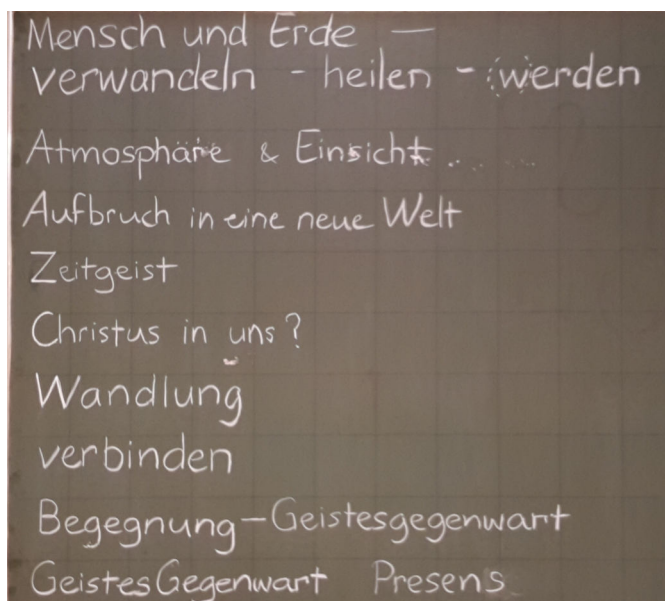 Mensch und Erde —
verwandeln - heilen - werden
Atmosphäre & Einsicht .. ... ...
Aufbruch in eine neue Welt
Zeitgeist
Christus in uns?
Wandlung
verbinden
Begegnung - Geistesgegenwart
GeistesGegenwart Presens